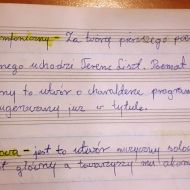 mfoniczny – Za twórcę pierwszego poe
nego uchodzi Ferenc Liszt. Poemat
ny to utwór o charakterze program
ugerowany już w tytule.
owa – jest to utwór muzyczny solo
st główny a towarzyszy mu akom